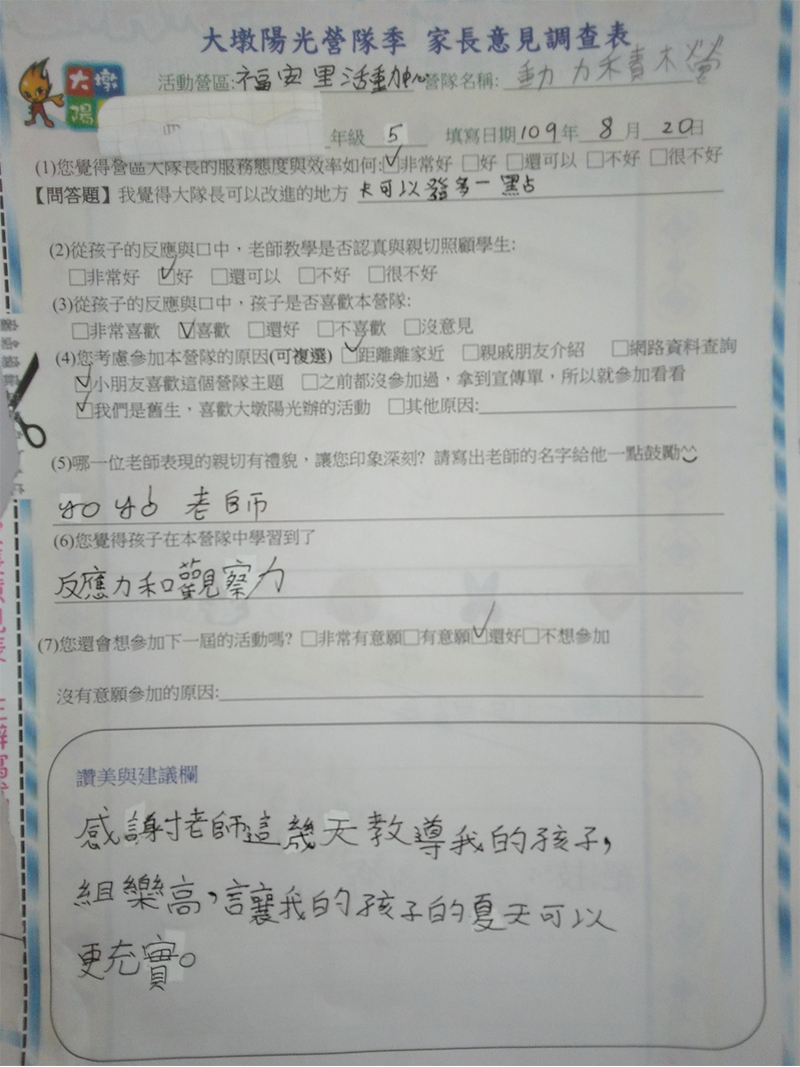 大墩陽光營隊季 家長意見調查表
大墩
陽
活動營區:福安里活動中心 營隊名稱: 動力積木營
年級 5 填寫日期109年 8 月 20日
(1)您覺得營區大隊長的服務態度與效率如何:☑非常好 □好 □還可以 □不好 □很不好
【問答題】我覺得大隊長可以改進的地方 卡可以發多一點
(2)從孩子的反應與口中，老師教學是否認真與親切照顧學生:
□非常好 ☑好 □還可以 □不好 □很不好
(3)從孩子的反應與口中，孩子是否喜歡本營隊:
□非常喜歡 ☑喜歡 □還好 □不喜歡 □沒意見
(4)您考慮參加本營隊的原因(可複選) ☑距離離家近 □親戚朋友介紹 □網路資料查詢
☑小朋友喜歡這個營隊主題 □之前都沒參加過，拿到宣傳單，所以就參加看看
☑我們是舊生，喜歡大墩陽光辦的活動 □其他原因:
(5)哪一位老師表現的親切有禮貌，讓您印象深刻? 請寫出老師的名字給他一點鼓勵
老師
(6)您覺得孩子在本營隊中學習到了
反應力和觀察力
(7)您還會想參加下一屆的活動嗎? □非常有意願□有意願☑還好□不想參加
沒有意願參加的原因:
讚美與建議欄
感謝老師這幾天教導我的孩子,
組樂高,讓我的孩子的夏天可以
更充實。